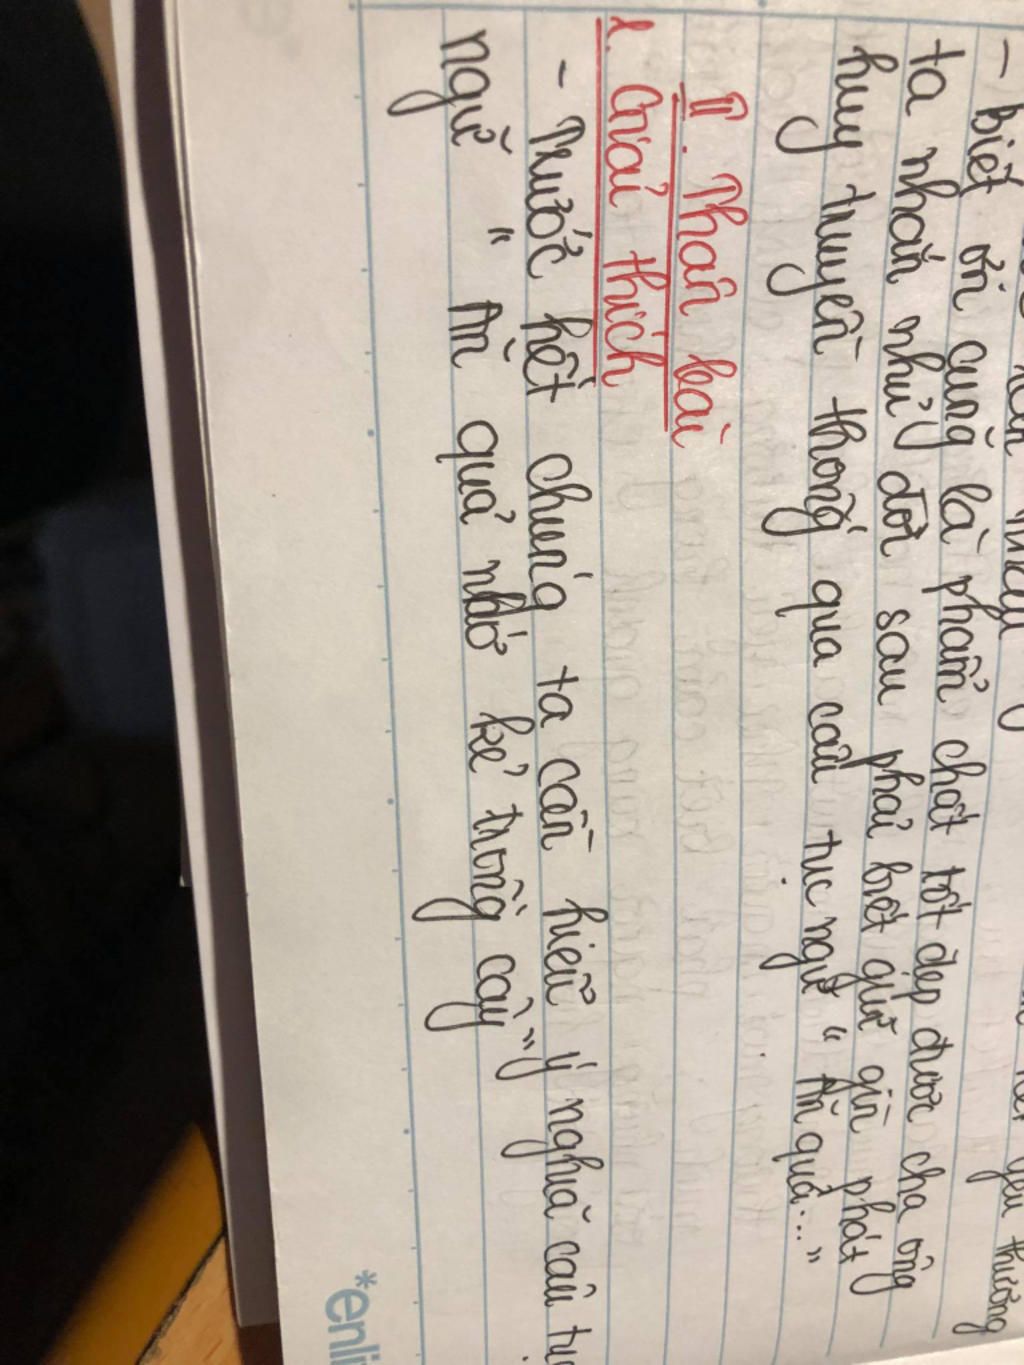 yêu thương
- Biết ơn cũng là phẩm chất tốt đẹp được cha ông
ta nhắn nhủ đời sau phải biết giữ gìn phát
huy truyền thống qua câu tục ngữ "Ăn quả..."
II. Thân bài
1. Giải thích
- Trước hết chúng ta cần hiểu ý nghĩa câu tục
ngữ "Ăn quả nhớ kẻ trồng cây"
*enli